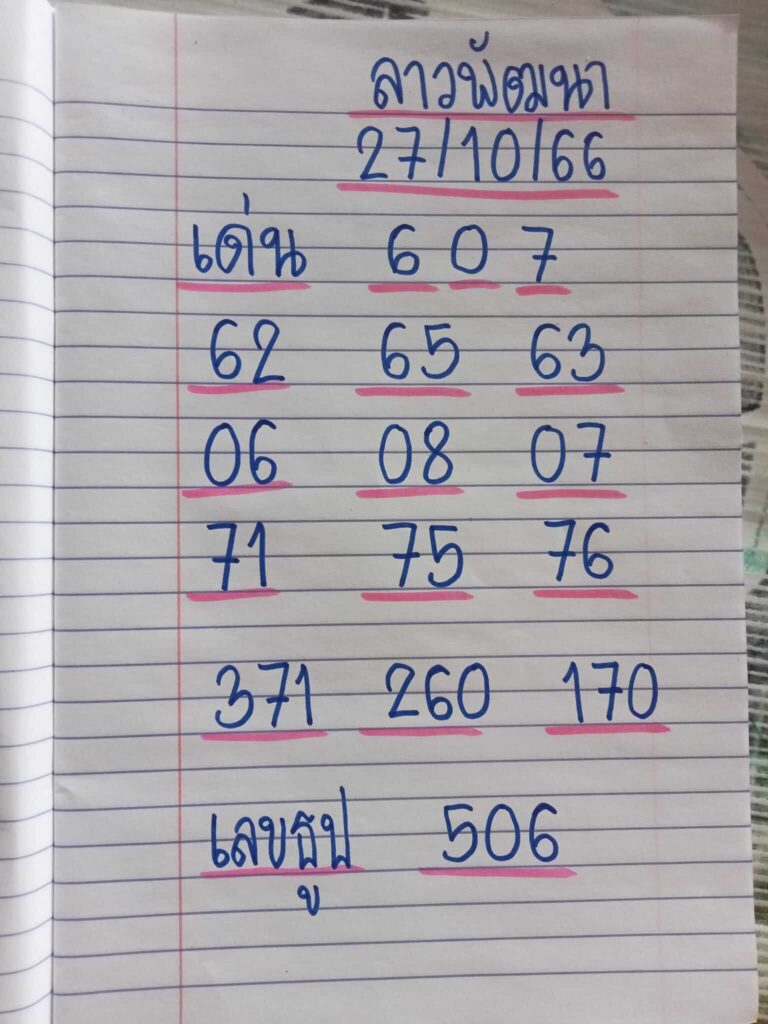 ลาวพัฒนา
27/10/66
เด่น 6 0 7
62 65 63
06 08 07
71 75 76
371 260 170
เลขธูป 506